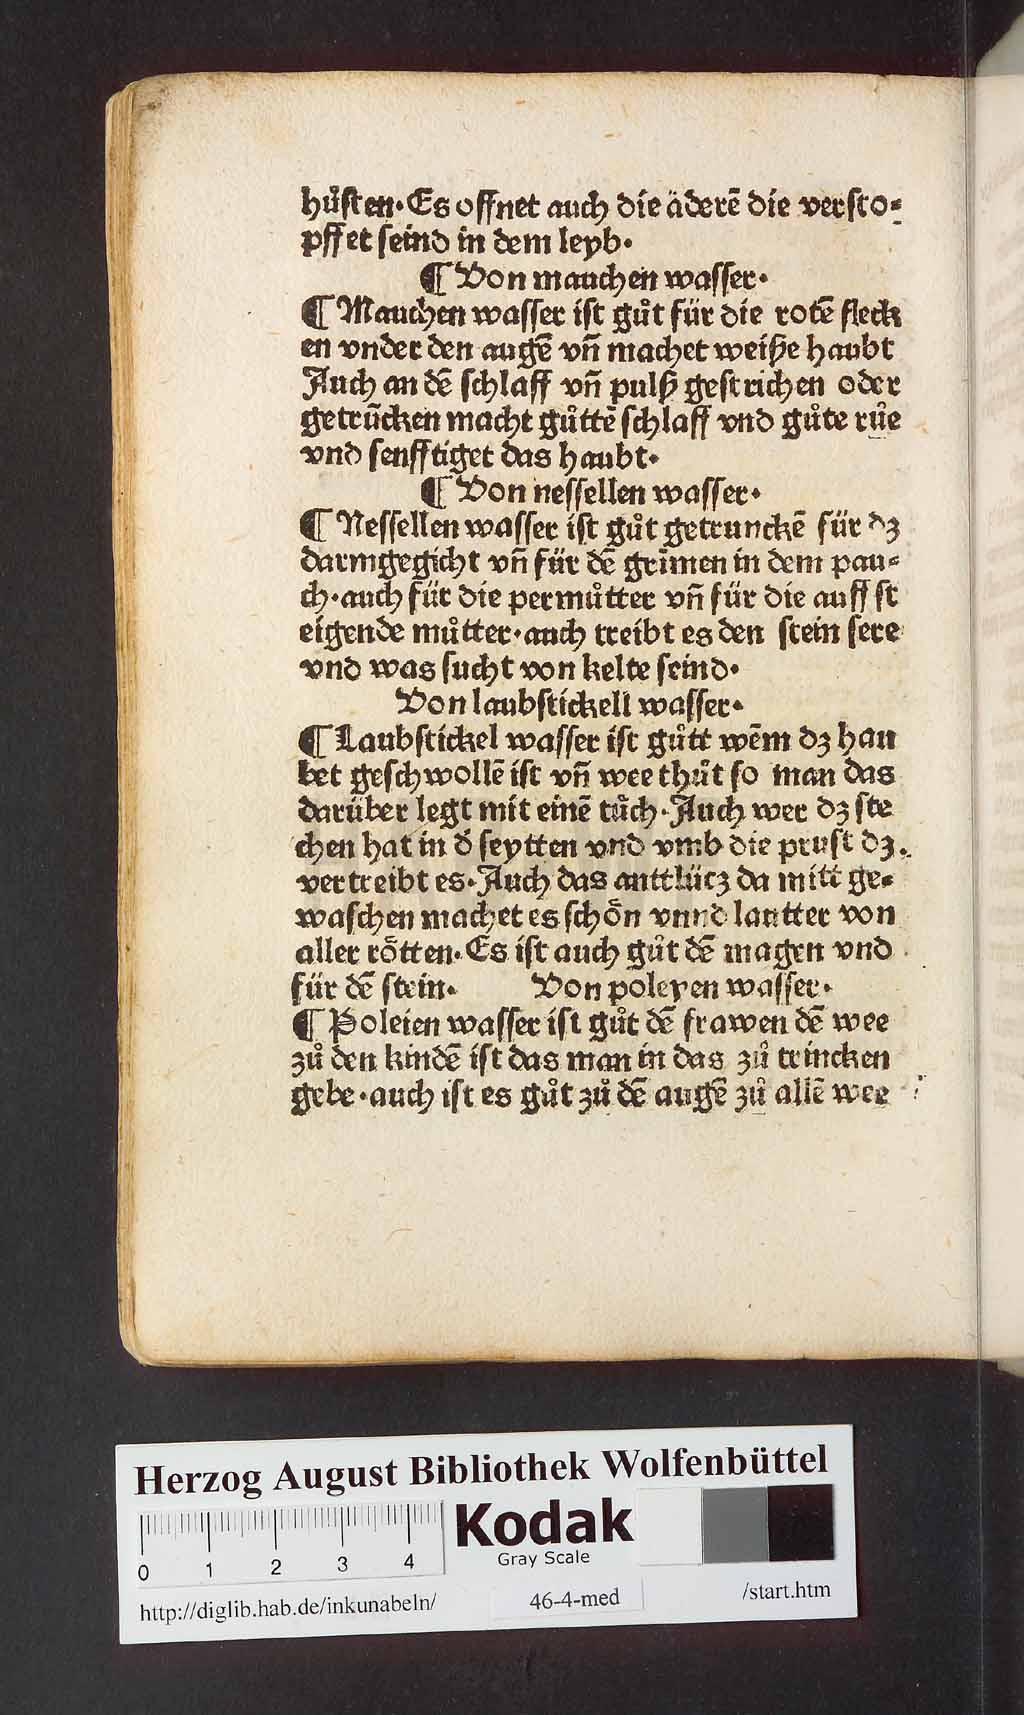 hůſten·Es offnet auch die äderē die verſto⸗
pffet ſeind in dem leyb·
¶ Von mauchen waſſer·
¶ Mauchen waſſer iſt gůt für die rotē fleck
en vnder den augē vñ machet weiſſe haubt
Auch an dē ſchlaff vñ pulß geſtrichen oder
getrūcken macht gůttē ſchlaff vnd gůte růe
vnd ſenfftiget das haubt·
¶ Von neſſellen waſſer·
¶ Neſſellen waſſer iſt gůt getrunckē für dꝫ
darmgegicht vñ für dē grimen in dem pau⸗
ch·auch für die permůtter vñ für die auff ſt
eigende můtter·auch treibt es den ſtein ſere
vnd was ſucht von kelte ſeind·
Von laubſtickell waſſer·
¶ Laubſtickel waſſer iſt gůtt wēm dꝫ hau
bet geſchwollē iſt vñ wee thůt ſo man das
darüber legt mit einē tůch·Auch wer dꝫ ſte
chen hat in d̄ ſeytten vnd vmb die pruſt dꝫ
vertreibt es·Auch das anttlücz da mitt ge⸗
waſchen machet es ſchoͤn vnnd lautter von
aller roͤtten·Es iſt auch gůt dē magen vnd
für dē ſtein· Von poleyen waſſer·
¶ Poleien waſſer iſt gůt dē frawen dē wee
zů den kindē iſt das man in das zů trincken
gebe·auch iſt es gůt zů dē augē zů allē wee
Herzog August Bibliothek Wolfenbüttel
Kodak
Gray Scale
0 1 2 3 4
http://diglib.hab.de/inkunabeln/ 46-4-med /start.htm